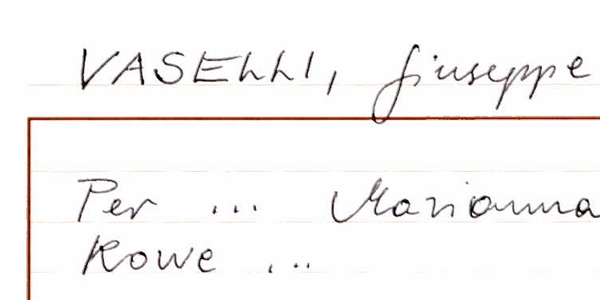 VASELLI, Giuseppe
Per ... Marianna
Rowe ...